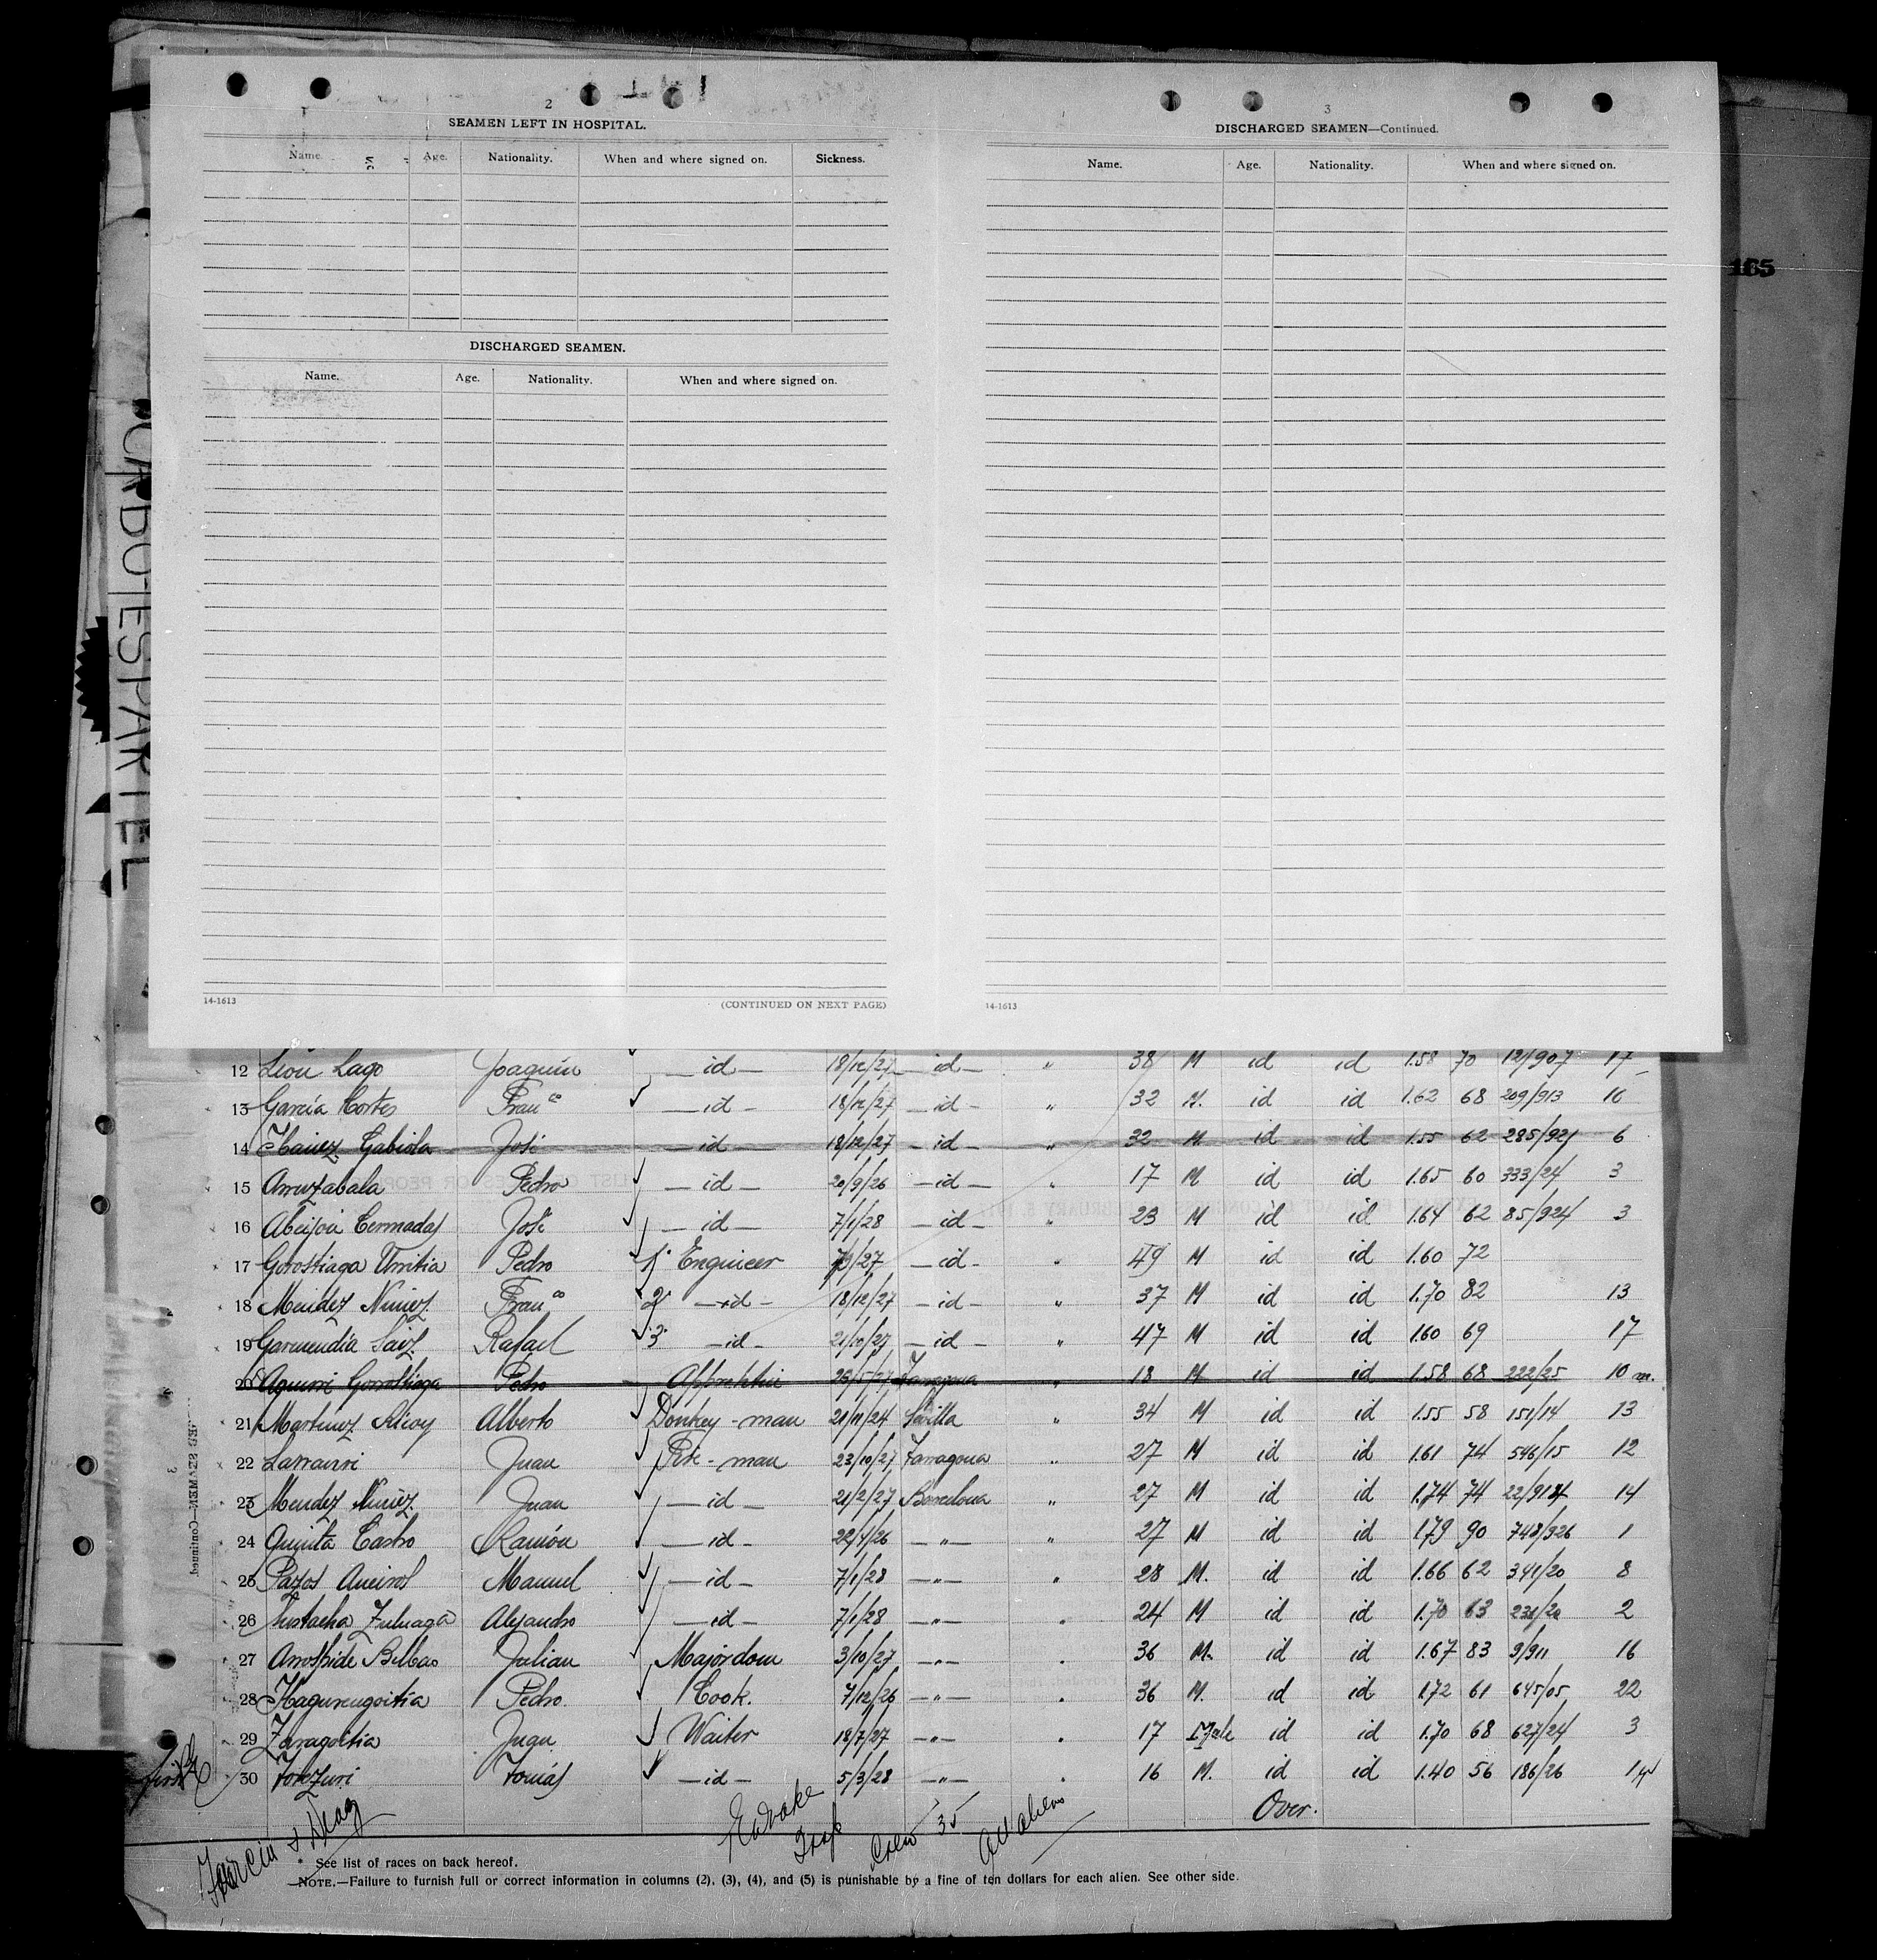 2
SEAMEN LEFT IN HOSPITAL.
Name. Age. Nationality. When and where signed on. Sickness.
DISCHARGED SEAMEN.
Name. Age. Nationality. When and where signed on.
14-1613 (CONTINUED ON NEXT PAGE)
3
DISCHARGED SEAMEN—Continued.
Name. Age. Nationality. When and where signed on.
14-1613
165
12 Leon Lago Joaquin — id — 18/12/27 — id — " 38 M id id 1.58 70 121/907 17
13 García Cortes Fran co — id — 18/12/27 — id — " 32 M. id id 1.62 68 209/913 16
14 Ibañez Gabiola José — id — 18/12/27 — id — " 32 M id id 1.55 62 285/921 6
15 Arruzabala Pedro — id — 20/9/26 — id — " 17 M id id 1.65 60 333/24 3
16 José — id — 7/1/28 — id — " 23 M id id 1.64 62 85/924 3
17 Gorostiaga Urrutia Pedro 1º Engineer — id — " 49 M id id 1.60 72
18 Mendez Nuñez Fran co 2º — id — 18/12/27 — id — " 37 M id id 1.70 82 13
19 Garmendia Saiz Rafael 3º — id — 21/10/27 — id — " 47 M id id 1.60 69 17
20 Pedro Tarragona " 18 M id id 1.58 68 222/25 10 m.
21 Martinez Alberto Donkey - man 21/11/24 Sevilla " 34 M id id 1.55 58 151/14 13
22 Larrauri Juan Fire - man 23/10/27 Tarragona " 27 M id id 1.61 74 546/15 12
23 Mendez Nuñez Juan — id — 21/2/27 Barcelona " 27 M id id 1.74 74 14
24 Quinta Castro Ramón — id — — " — " 27 M id id 1.79 90 748/926 1
25 Pazos Manuel — id — 7/1/28 — " — " 28 M. id id 1.66 62 341/20 8
26 Zuluaga Alejandro — id — 7/1/28 — " — " 24 M id id 1.70 63 2
27 Arrospide Bilbao Julian Majordom 3/10/27 — " — " 36 M. id id 1.67 83 9/911 16
28 Pedro Cook. 7/12/26 — " — " 36 M. id id 1.72 61 645/05 22
29 Zaragoitia Juan Waiter 18/7/27 — " — " 17 Male id id 1.70 68 627/24 3
30 Tomás — id — 5/3/28 — " — " 16 M. id id 1.40 56 186/26
Over.
Crew 35
All aliens
* See list of races on back hereof.
NOTE.—Failure to furnish full or correct information in columns (2), (3), (4), and (5) is punishable by a fine of ten dollars for each alien. See other side.